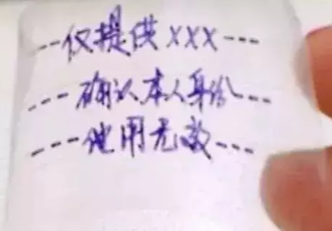 ---仅提供XXX---
---确认本人身份---
---他用无效---